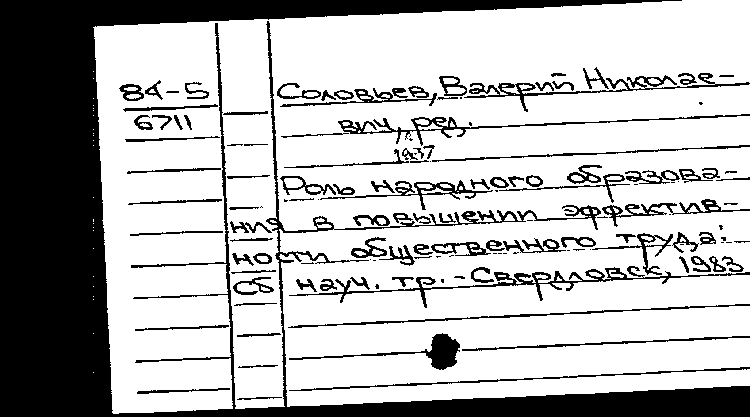 84-5 Соловьев, Валерий Николае-
6711 вич, ред.
Роль народного образова-
ния в повышении эффектив-
ности общественного труда:
Сб науч. тр. - Свердловск, 1983